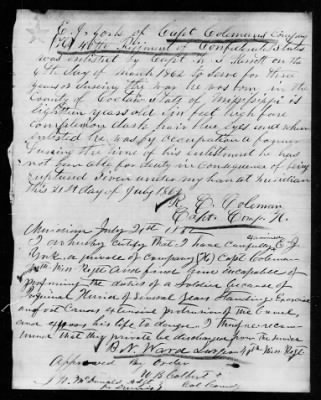 E. J. York of Capt Colemans Company
(H) 46th Regiment of Confederate States
was enlisted by Capt on the
4th day of March 1862 to serve for three
years or during the war he was born in the
County of State of Mississippi is
Eighteen years old feet high fare
Complexion dark hair blue eyes and when
enlisted he was by occupation a farmer
During the time of his enlistment he has
not been able for duty in consequence of being
ruptured Given under my hand at Meridian
this 21st day of July 1862
R. C. Coleman
Capt. Comp. H.
July 21st 1862
I do hereby Certify that I have Carefully examined E J
York a private of company (H) Capt Coleman
46th Miss Regt and find him incapable of
performing the duties of a Soldier because of
Inguinal Hernia of Several years Standing Exercise
on foot Causes extensive protrusion of the bowels
and exposes his life to danger I therefore recom
mend that this private be discharged from the service
B. N. Ward Surgeon 46th Miss Regt
Approved By Order
W B Colbert
Col Comdg